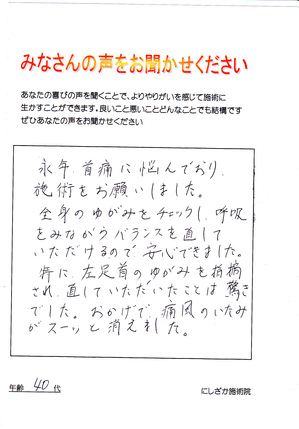 みなさんの声をお聞かせください
あなたの喜びの声を聞くことで、よりやりがいを感じて施術に
生かすことができます。良いこと悪いことどんなことでも結構です
ぜひあなたの声をお聞かせください
永年、首痛に悩んでおり、
施術をお願いしました。
全身のゆがみをチェックし、呼吸
をみながらバランスを直して
いただけるので、安心できました。
特に、左足首のゆがみを指摘
され、直していただいたことは驚き
でした。おかげで、痛風のいたみ
がスーッと消えました。
年齢 40 代
にしざか施術院